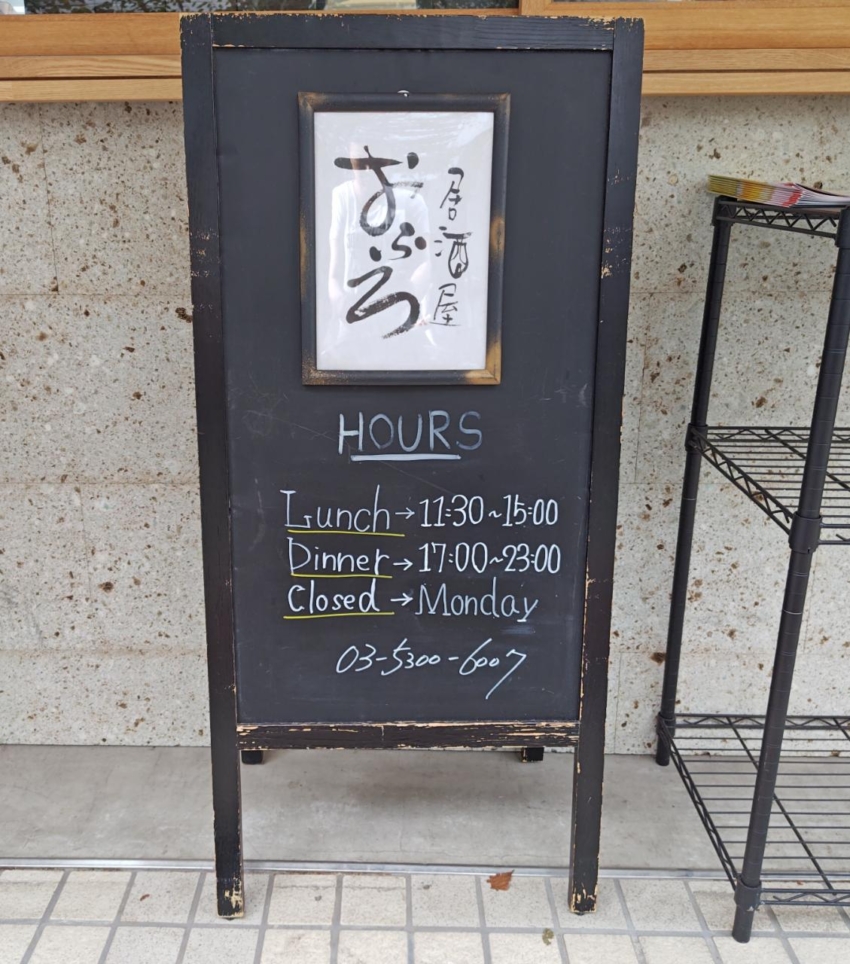 居酒屋
おふろ
HOURS
Lunch→11:30~15:00
Dinner→17:00~23:00
Closed→Monday
03-5300-6007